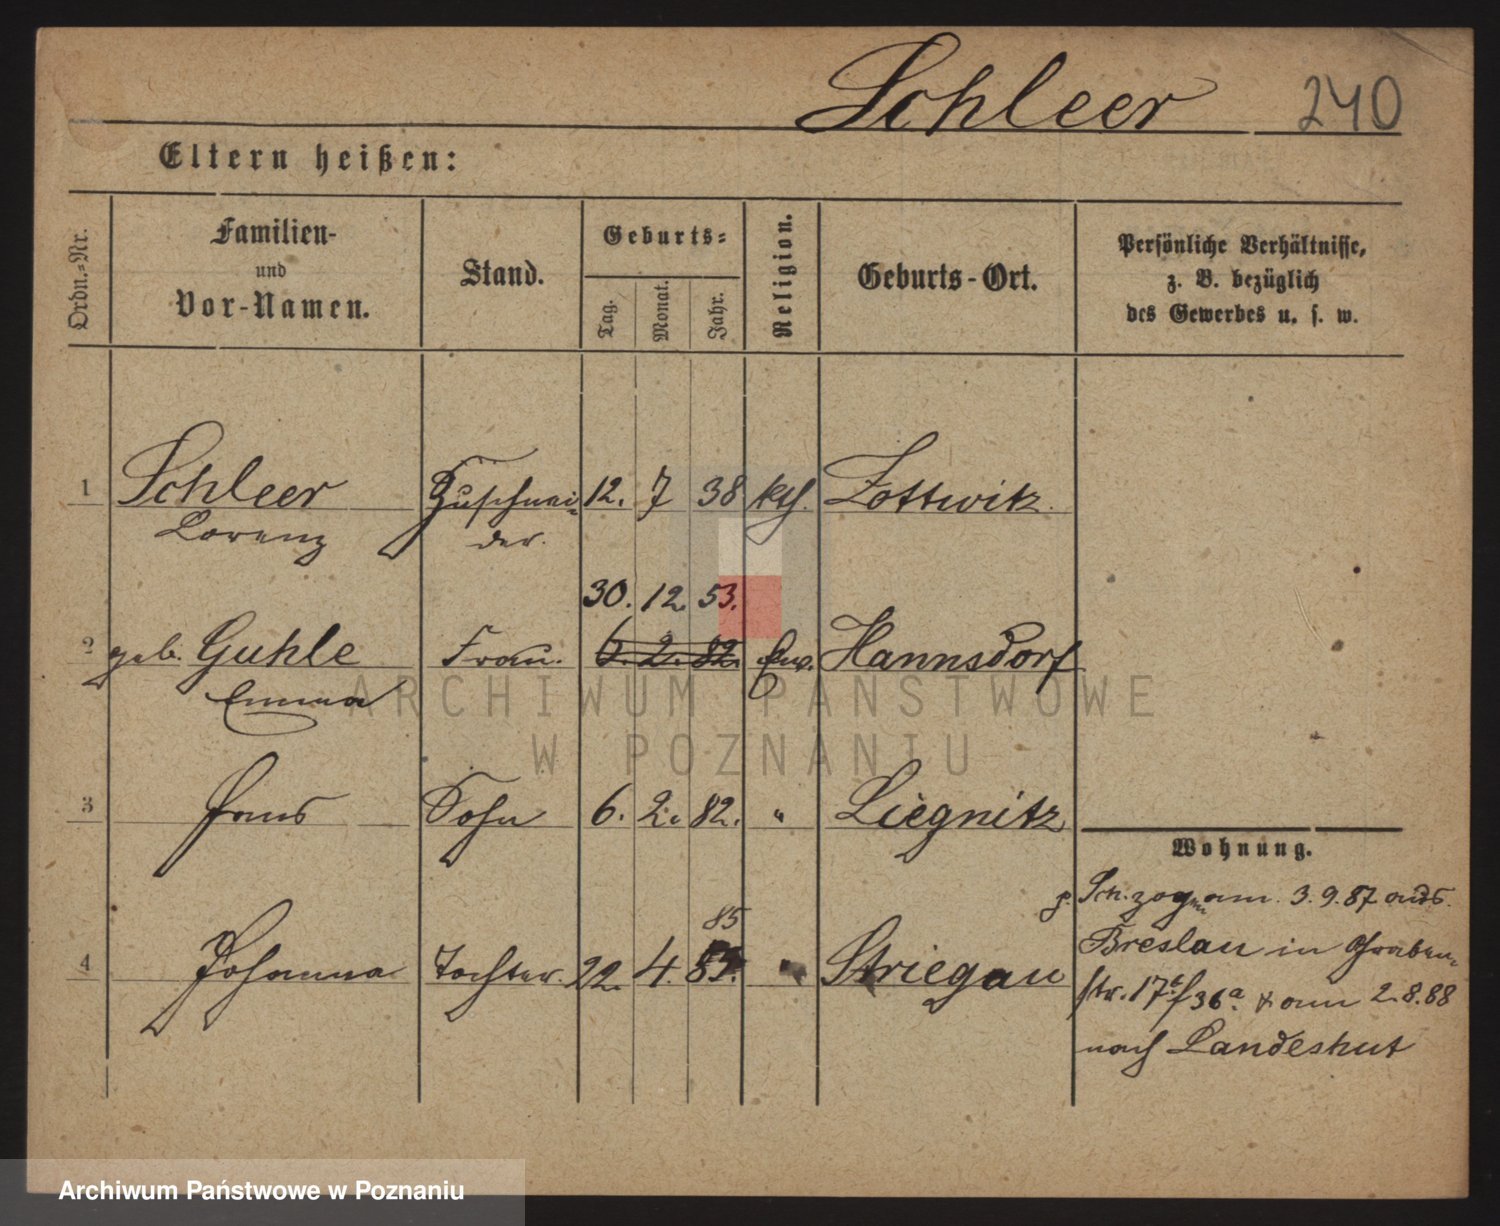 Schleer 240
Eltern heißen:
Ordn.-Nr.
Familien-
und
Vor-Namen.
Stand.
Geburts-
Tag.
Monat.
Jahr.
Religion.
Geburts-Ort.
Persönliche Verhältnisse,
z. B. bezüglich
des Gewerbes u. s. w.
1 Schleer Zuschnei- 12. 7 38 kth. Zottwitz.
Lorenz der.
30. 12. 53.
2 geb. Guhle Frau. 6. 2. 82. Ev. Hannsdorf
Emma
ARCHIWUM PAŃSTWOWE
W POZNANIU
3 Sohn 6. 2. 82. " Liegnitz
Wohnung.
Sch. zog am 3.9.87 aus
85
Breslau in Graben-
4 Johanna Tochter. 22. 4. " Striegau
str. 36a & am 2.8.88
nach Landeshut
Archiwum Państwowe w Poznaniu